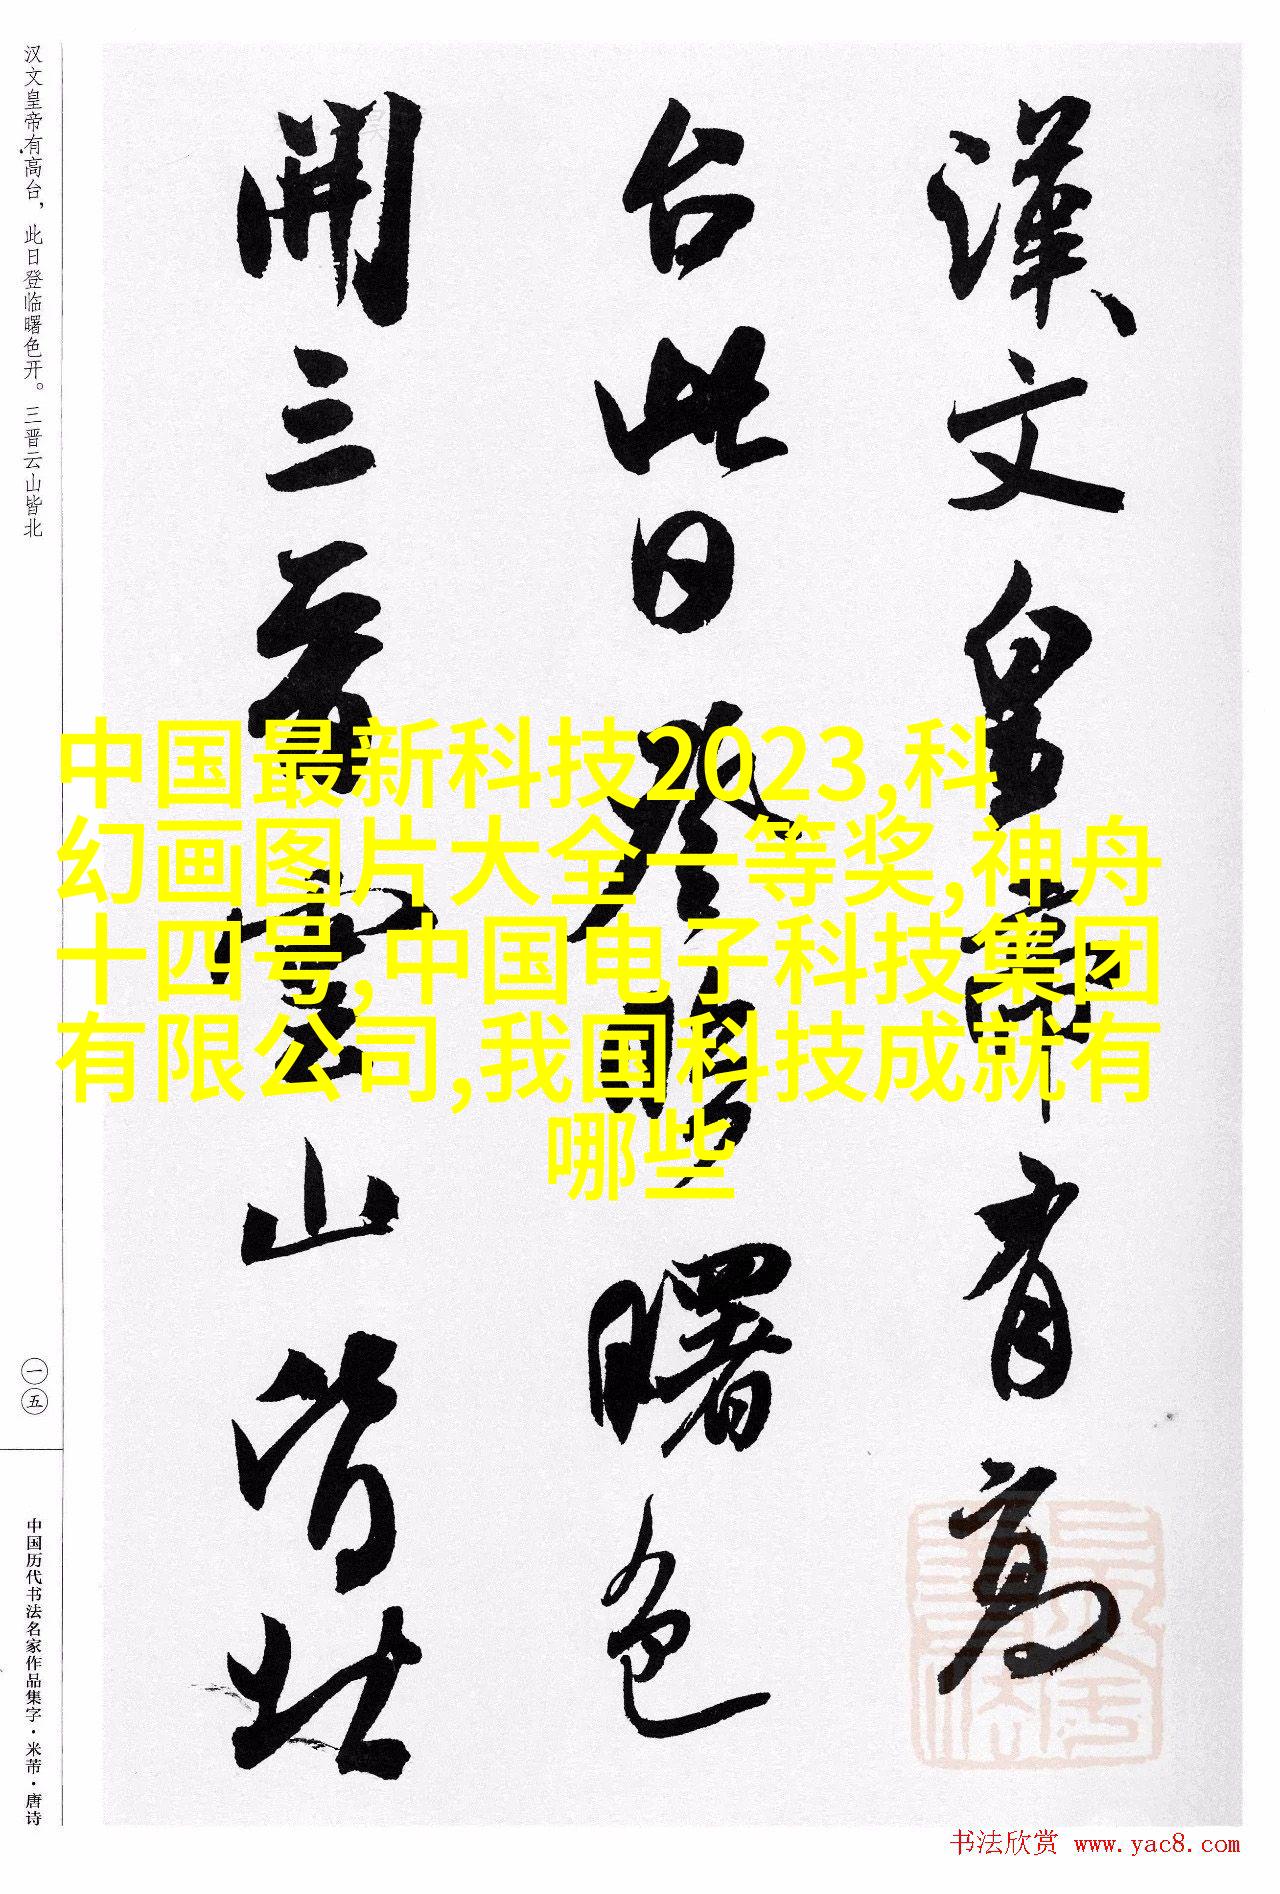 漢文皇帝有高
台此日登臨曙色
開三晋雲山皆北
汉文皇帝有高台，此日登临曙色开。三晋云山皆北
一五
中国历代书法名家作品集字·米芾·唐诗
中国最新科技2023,科
幻画图片大全一等奖,神舟
十四号,中国电子科技集团
有限公司,我国科技成就有
哪些
书法欣赏 www.yac8.com